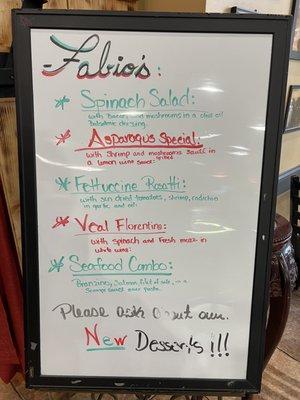 Fabio's:
Spinach Salad:
with Bacon and mushrooms in a olive oil
Balsamic dressing.
Asparagus Special:
with Shrimp and mushrooms sauté in
a lemon wine sauce: Grilled
Fettuccine Rosatti:
with sun dried tomatoes, shrimp, radichio
in garlic and oil.
Veal Florentine:
with spinach and Fresh mozz in
white wine.
Seafood Combo:
Branzino, Salmon, filet of sole, in a
sauce over pasta.
Please ask about our.
New Desserts!!!